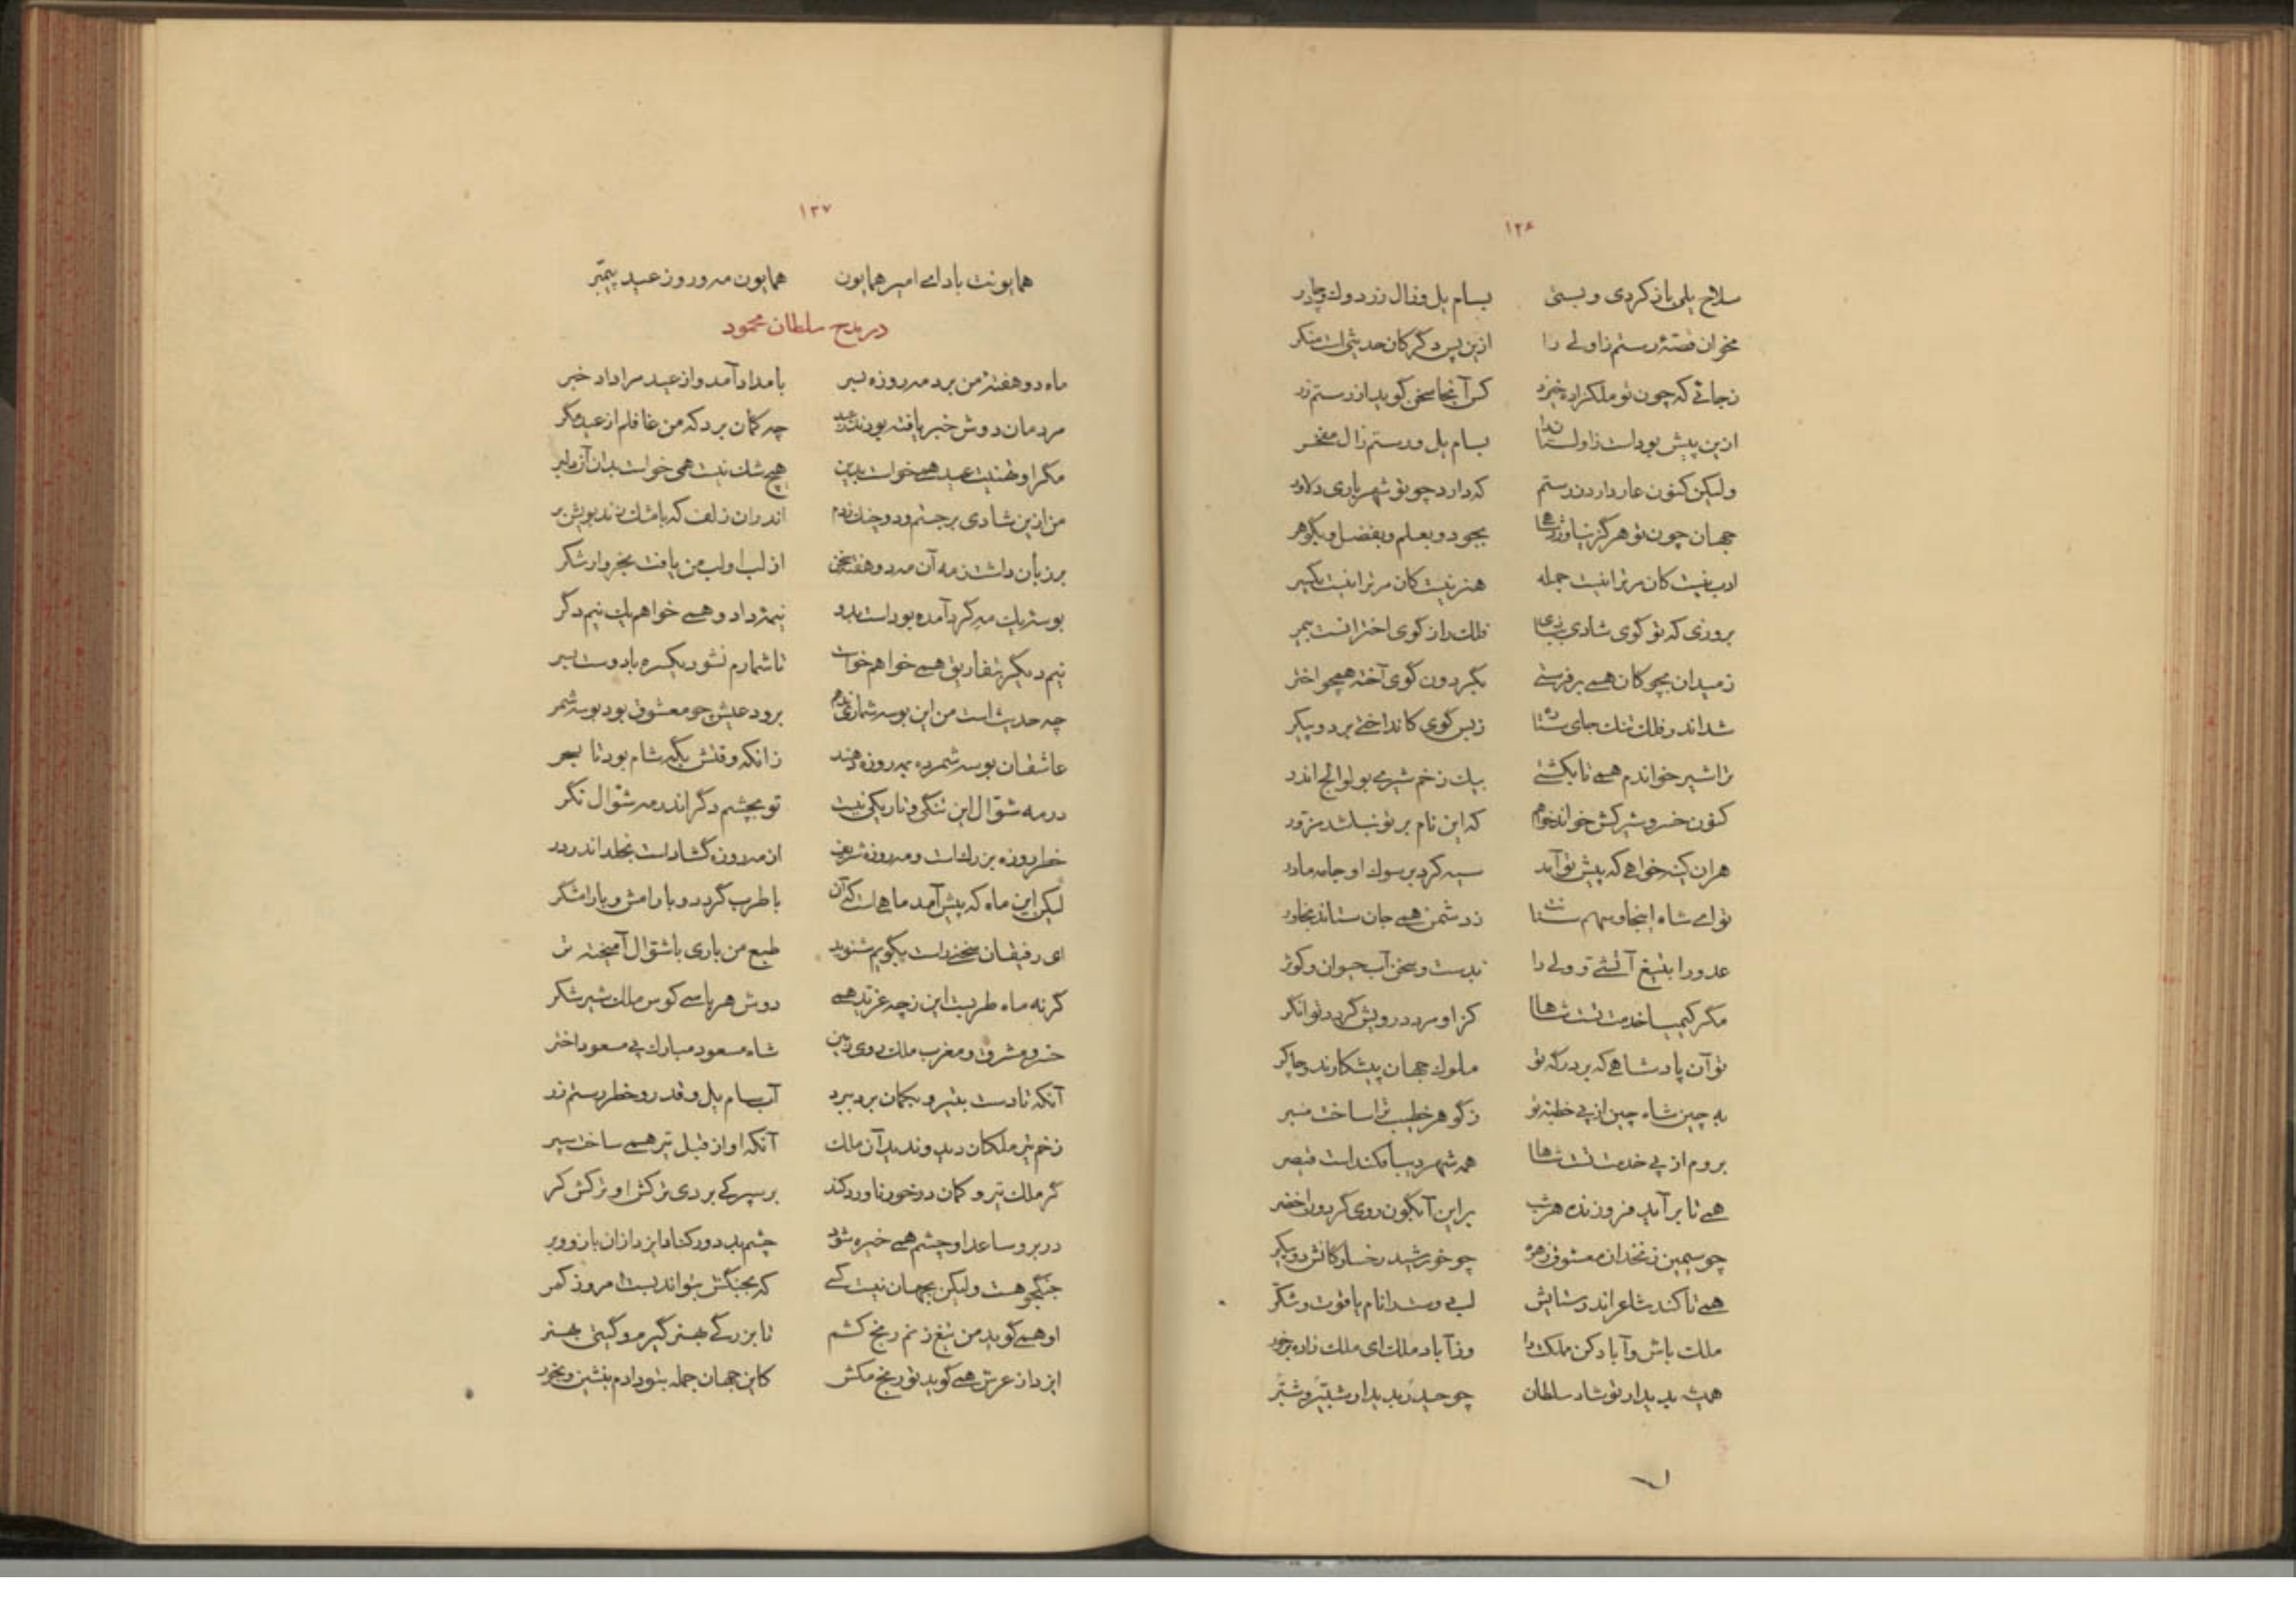 ۱۲۶
سلاح یلی باز کردی و بستی بسام یل و زال زر دولت و چادر
مخوان قصهٔ رستم زاولی را ازین پس دگر کان حدیثی است منکر
زجائی که چون تو ملکزاده خیزد کس آنجا سخن گوید از رستم زر
ازین پیش بوداست زاولستانرا بسام یل و رستم زال مفخر
ولیکن کنون عار دارد ز رستم که دارد چو تو شهریاری دلاور
جهان چون تو هرگز نیاورد شاها بجود و بعلم و بفضل و بگوهر
ادب نیست کان مر ترا نیست جمله هنر نیست کان مر ترا نیست یکسر
بروزی که تو گوی شادی ببازی فلک را ز گوی اختر انست بهر
ز میدان بچوکان همی برفرستی بگردون گوی آخته همچو اختر
شداند رفلک تنک جای ستاره ز بس گوی کانداختی بر دو پیکر
ترا شیر خواندم همی تا بکشتی بیک زخم شیری بولوالج اندر
کنون خسرو شیرکش خواند خواهم که این نام بر تو نباشد مزور
هران کینه خواهی که پیش تو آید سیه کرد بر سوک او جامه مادر
تو ای شاه اینجا و سهم سنانت ز دشمن همی جان ستاند بخاور
عدو را بتیغ آتشی و ولی را بدست و سخن آب حیوان و کوثر
مگر کیمیا خدمت تست شاها کز او مرد درویش گردد توانگر
تو آن پادشاهی که بر درگه تو ملوک جهان پیشکارند و چاکر
به چین شاه چین از پی خطبه تو ز گوهر خطیب ترا ساخت منبر
بروم از پی خدمت تست شاها همه شهر دیبا فکنداست قیصر
همی تا بر آید فروزنده هر شب بر این آبگون روی گردون اخضر
چو سیمین زنخدان معشوق زهره چو خورشید رخسارگانش دو پیکر
همی تا کند شاعر اندر ستایش لب دوست را نام یاقوت و شکر
ملک باش و آباد کن مملکت را وز آباد ملک ای ملک زاده برخور
همیشه بدیدار تو شاد سلطان چو حیدر بدیدار شبیر و شبر
۱۲۷
همایونت باد ای امیر همایون همایون مه و روز عید پیمبر
در مدح سلطان محمود
ماه دو هفتهٔ من برد مه روزه بسر بامداد آمد و از عید مرا داد خبر
مردمان دوش خبر یافته بودند ز عید چه کمان برد که من غافلم از عید مگر
مگر او تهنیت عید همی خواست بدین هیچ شک نیست همی خواست بدان آن دلبر
من ازین شادی برجستم و دو چنک زدم اندران زلف که با مشک زند بویش بر
بر زبان داشت ز مه آن مه دو هفته سخن از لب او لب من یافت بخروار شکر
بوسهٔ یک مه گرد آمده بوداست بدو نیمهٔ داد و همی خواهم یک نیم دگر
نیم دیگر بتفاریق همی خواهم خواست تا شمارم نشود یکسره با دوست بسر
چه حدیث است من این بوسه شماری چه برود عیش چو معشوق بود بوسه شمر
عاشقان بوسه شمرده بمه روزه دهند زانکه وقتش بگه شام بود تا بسحر
در مه شوال این تنگی و تاریکی نیست تو بچشم دگر اندر مه شوال نگر
خطر روزه بزرک است و مه روزه شریف از مه روزه گشاد است بخلد اندر در
لیکن این ماه که پیش آمد ماهی است که آن با طرب گردد و با رامش و با رامشگر
ای رفیقان سخنی راست بگویم شنوید طبع من باری با شوال آمیخته تر
گر نه ماه طربست این ز چه غرید همی دوش هر پاسی کوس ملک شیر شکر
خسرو مشرق و مغرب ملک روی زمین شاه مسعود مبارک پی مسعود اختر
آنکه تا دست بتیر و بکمان برد ببرد آب سام یل و قدر و خطر رستم زر
زخم تیر ملکان دید و ندید آن ملک آنکه او از قبل تیر همی ساخت سپر
گر ملک تیر و کمان در خور ناورد کند بر سپر کی بردی ترکش او ترکش گر
در بر و ساعد او چشم همی خیره شود چشم بد دور کناد ایزد ازان بازو و بر
جنگجو هست ولیکن بجهان نیست کسی که بجنگش بتواند بست امروز کمر
او همی گوید من تیغ زنم رنج کشم تا بزرگی بهنر گیرم و گیتی بهنر
ایزد از عرش همی گوید تو رنج مکش کاین جهان جمله بتو دادم بنشین و بخور